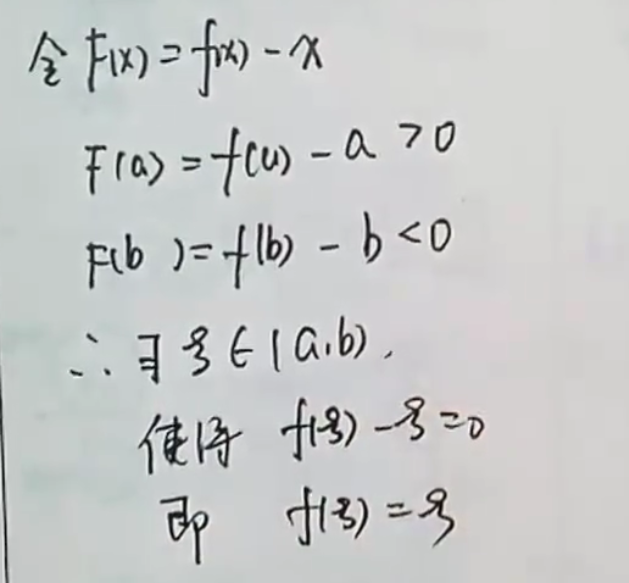 令 F(x) = f(x) - x
F(a) = f(a) - a > 0
F(b) = f(b) - b < 0
∴ ∃ ξ ∈ (a,b),
使得 f(ξ) - ξ = 0
即 f(ξ) = ξ